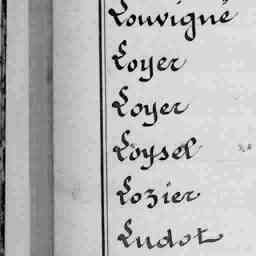 Louvigné
Loyer
Loyer
Loysel
Lozier
Ludot